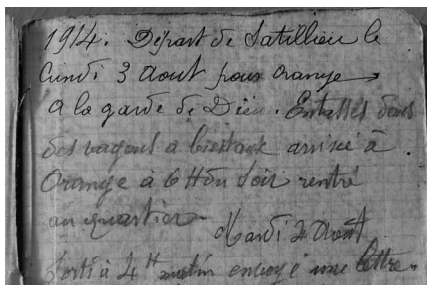 1914. Départ de Satillieu le
lundi 3 Aout pour Orange
A la garde de Dieu. Entassés dans
des wagons a bestiaux arrivée à
Orange à 6 H du soir rentré
au quartier.
Mardi 4 Août
Sorti à 4 H matin envoyé une lettre.